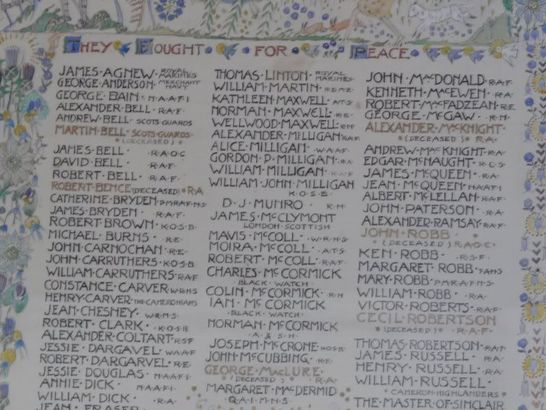 THEY FOUGHT FOR PEACE
JAMES·AGNEW·ROYAL MARINES
GEORGE·ANDERSON·MERCHANT NAVY
GEORGE·BAIN·N·A·A·F·I
ALEXANDER·BELL·R·A·F·
ANDREW·BELL·SCOTS GUARDS
MARTIN·BELL·SCOTS·GUARDS
(DECEASED)
JAMES·BELL·R·A·O·C
DAVID·BELL·R·A·F·
ROBERT·BELL·R·A·F·
ROBERT·BENCE(DECEASED)·R·A
CATHERINE·BRYDEN·P·M·R·A·F·N·S
JAMES·BRYDEN·R·A·F·
ROBERT·BROWN·K·O·S·B·
MICHAEL·BURNS·R·E·
JOHN·CARNOCHAN·R·E·
JOHN·CARRUTHERS·K·O·S·B
WILLIAM·CARRUTHERS·R·A·F
CONSTANCE·CARVER·W·R·N·S
HENRY·CARVER·THE CAMERONIANS
JEAN·CHESNEY·W·R·N·S·
ROBERT·CLARK·K·O·S·B
ALEXANDER·COLTART·R·S·F
JESSIE·DARGAVEL·W·A·A·F
ROBERT·DARGARVEL·R·E·
JESSIE·DOUGLAS·N·A·A·F·I
ANNIE·DICK·N·A·A·F·I·
WILLIAM·DICK·R·A·
JEAN·FRASER
THOMAS·LINTON·ROYAL MARINES
WILLIAM·MARTIN·R·E·M·E·
KATHLEEN·MAXWELL·A·T·S·
NORMAN·MAXWELL·R·E·
WELLWOOD·MAXWELL
ALEXANDER·MILLIGAN·R·A·F
ALICE·MILLIGAN·W·A·A·F·
GORDON·D·MILLIGAN·
WILLIAM·MILLIGAN·
WILLIAM·JOHN·MILLIGAN
K·O·S·B·
D·J·MUNRO·R·N·
JAMES·McCLYMONT
LONDON·SCOTTISH
MAVIS·McCOLL·W·R·N·S·
MOIRA·McCOLL·A·T·S·
ROBERT·McCOLL·R·A·F·
CHARLES·McCORMICK
BLACK·WATCH
COLIN·McCORMICK·R·N·
IAN·McCORMICK
BLACK·WATCH·
NORMAN·McCORMICK
A·&·S·H·
JOSEPH·McCRONE·
JOHN·McCUBBING·R·E·
GEORGE·MacLURE·
(DECEASED)·R·A·
MARGARET·MacDERMID
Q·A·I·M·N·S·
JOHN·MacDONALD·R·A·F·
KENNETH·MacEWEN·R·A·
ROBERT·McFADZEAN·R·E·
GEORGE·McGAW·R·N·
ALEXANDER·McKNIGHT·
(DECEASED)·R·A·
ANDREW·McKNIGHT·R·A·
EDGAR·McNAUGHT·R·C·S·
JAMES·McQUEEN·R·A·F·
JEAN·McQUEEN·N·A·A·F·I
ALBERT·McLELLAN·R·A·F·
JOHN·PATERSON·R·A·
ALEXANDER·RAMSAY·R·A·F·
JOHN·ROBB·
(DECEASED)·R·A·O·C·
KEN·ROBB·R·S·F·
MARGARET·ROBB·
MARY·ROBB·P·M·R·A·F·N·S
WILLIAM·ROBB·R·A·
VICTOR·ROBERTS·R·A·F·
CECIL·ROBERTSON
(DECEASED)·R·A·F·
THOMAS·ROBERTSON·R·A·F·
JAMES·RUSSELL·R·A·
HENRY·RUSSELL·R·A·
WILLIAM·RUSSELL·
CAMERON·HIGHLANDERS·
THE·MASTER·OF·SINCLAIR